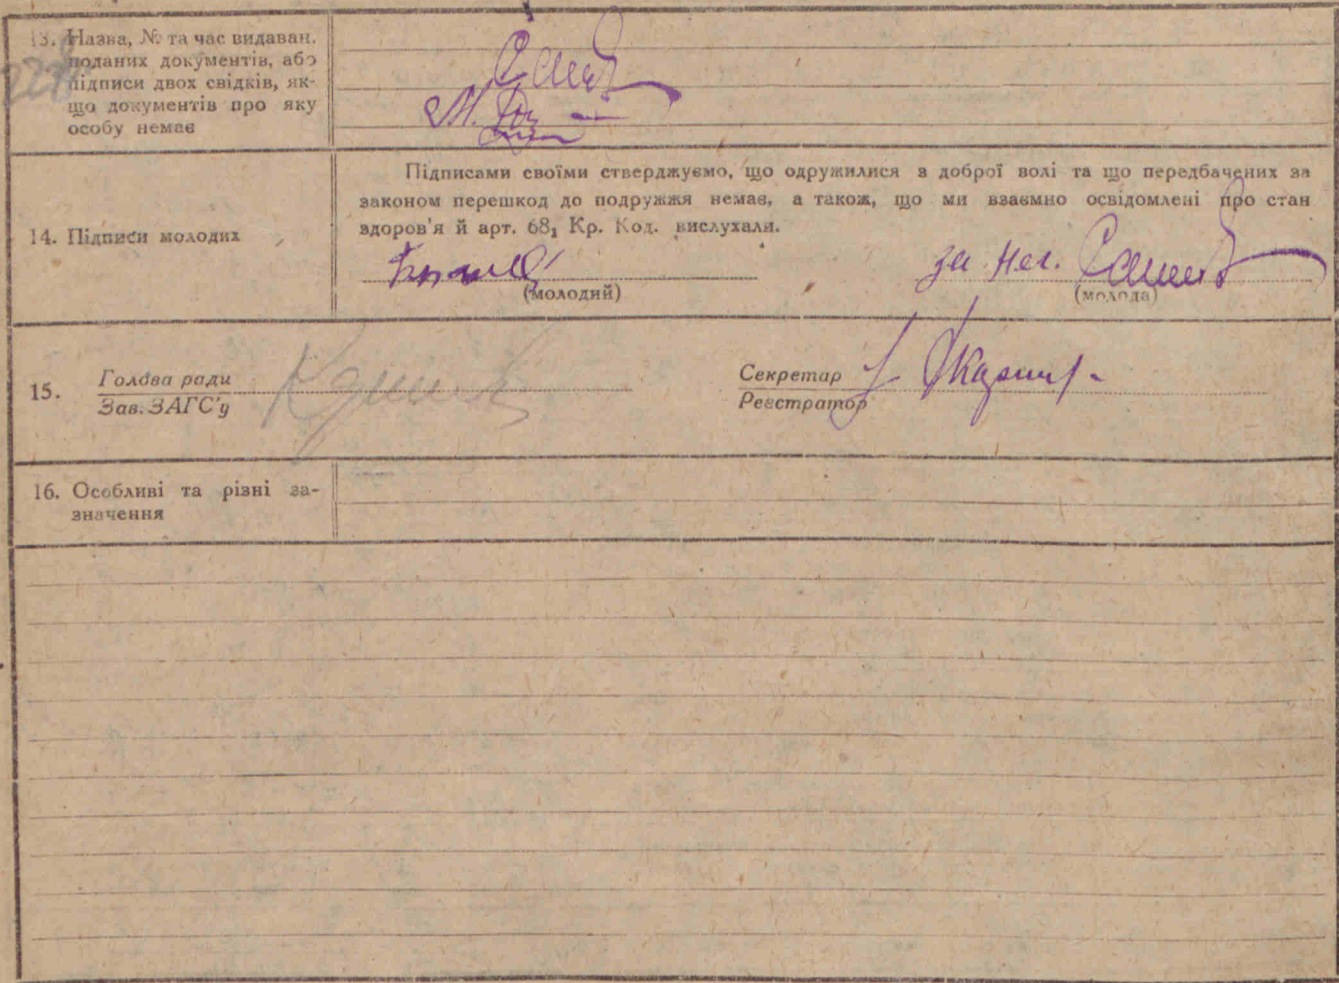 13. Назва, № та час видаван.
поданих документів, або
підписи двох свідків, як-
що документів про яку
особу немає
Підписами своїми стверджуємо, що одружилися з доброї волі та що передбачених за
законом перешкод до подружжя немає, а також, що ми взаємно освідомлені про стан
здоров'я й арт. 68₁ Кр. Код. вислухали.
14. Підписи молодих
за нег.
(молодий)
(молода)
15. Голова ради
Зав. ЗАГС'у
Секретар
Реєстратор
16. Особливі та різні за-
значення